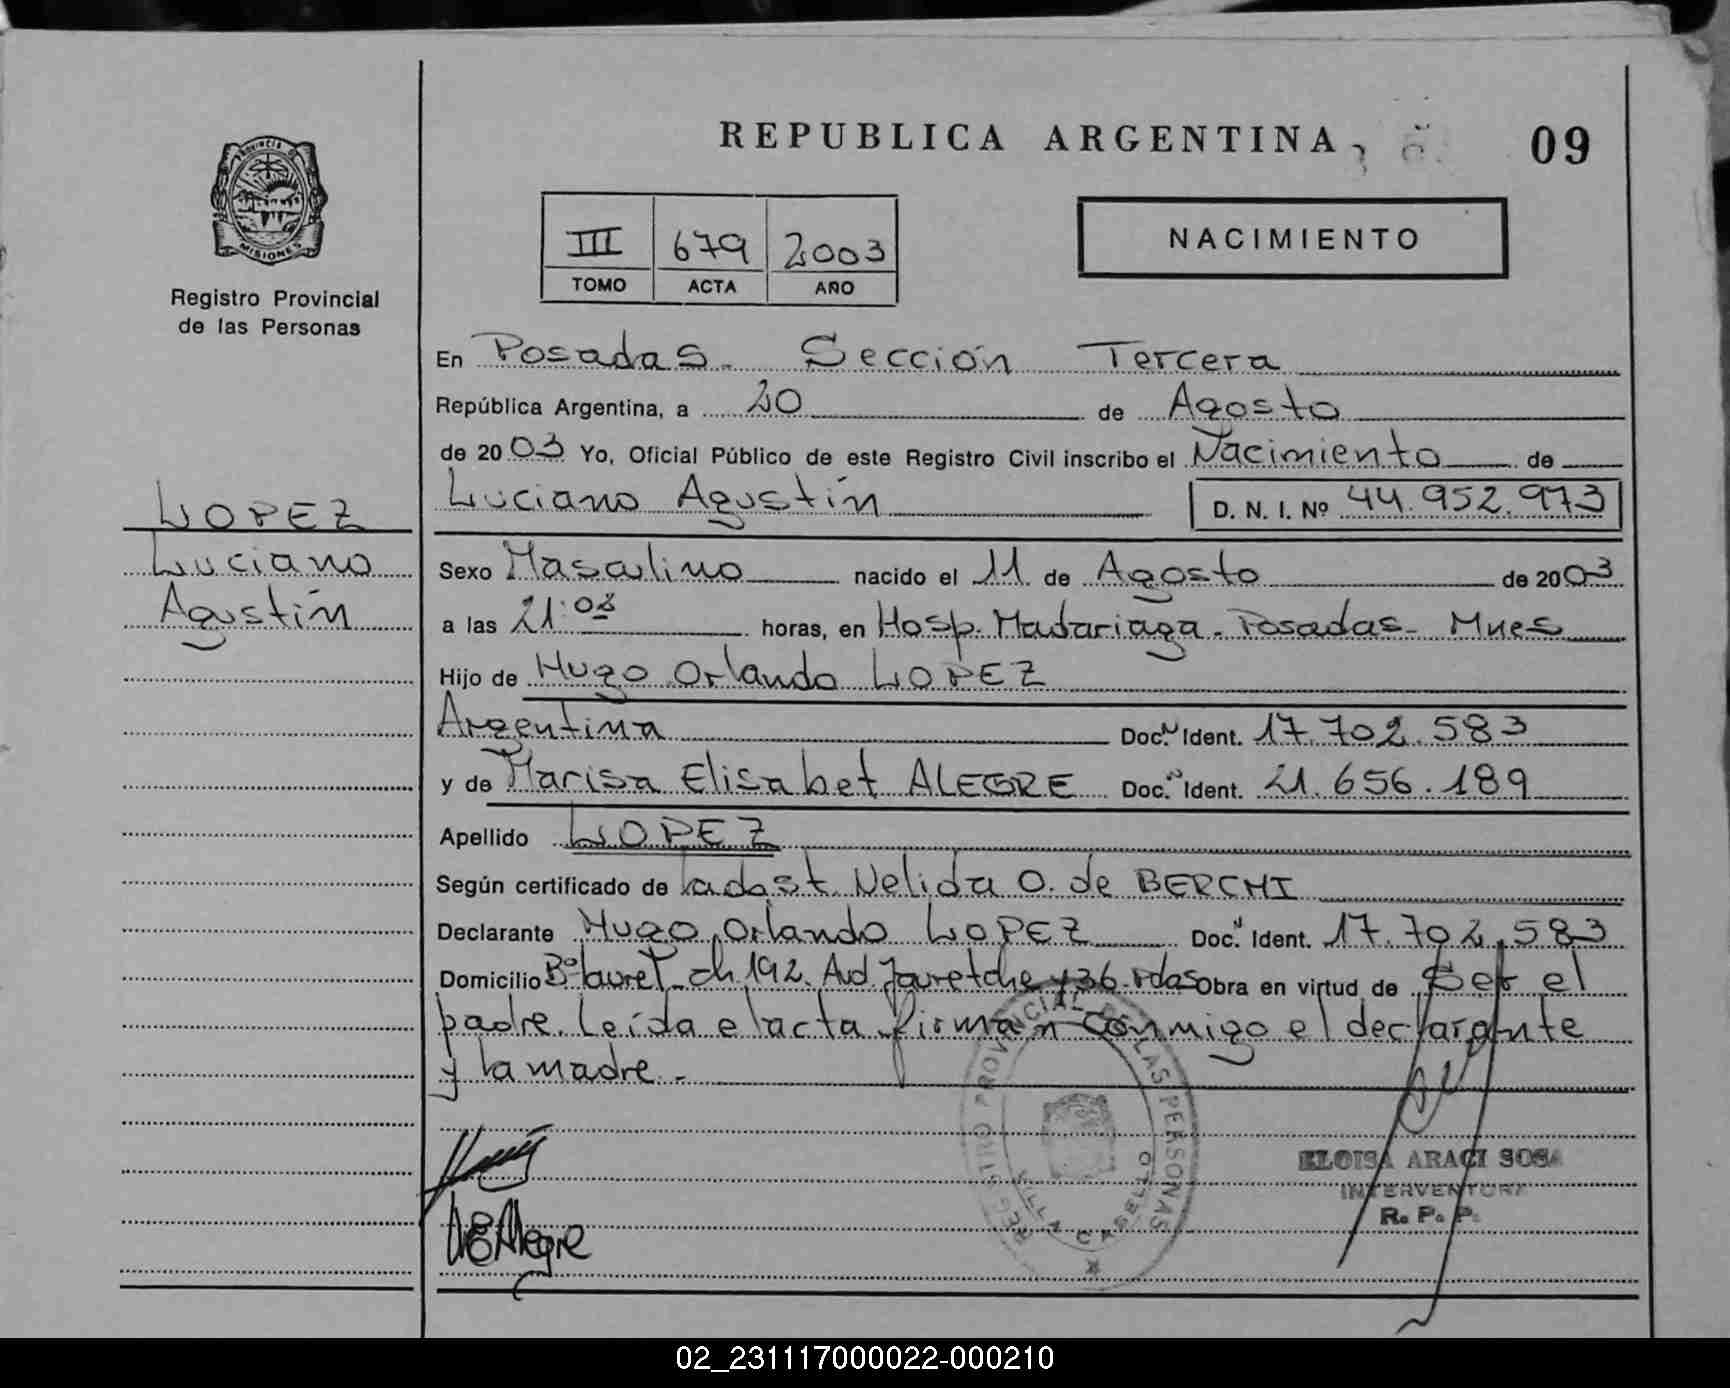 REPUBLICA ARGENTINA
09
PROVINCIA DE
MISIONES
Registro Provincial
de las Personas
III 679 2003
TOMO ACTA AÑO
NACIMIENTO
En Posadas - Sección Tercera
República Argentina, a 20 de Agosto
de 2003 Yo, Oficial Público de este Registro Civil inscribo el Nacimiento de
Luciano Agustín D. N. I. Nº 44.952.973
LOPEZ
Luciano
Agustín
Sexo Masculino nacido el 11 de Agosto de 2003
a las 21:08 horas, en Hosp. Madariaga - Posadas - Mnes
Hijo de Hugo Orlando LOPEZ
Argentina Doc. Ident. 17.702.583
y de Marisa Elisabet ALEGRE Doc. Ident. 21.656.189
Apellido LOPEZ
Según certificado de Nelida O. de BERCHI
Declarante Hugo Orlando LOPEZ Doc. Ident. 17.702.583
Domicilio Bº Laurel - ch 192. Avd. Jauretche y 36 - Pdas Obra en virtud de Ser el
padre. Leída el acta firman conmigo el declarante
y la madre -
REGISTRO PROVINCIAL DE LAS PERSONAS
VILLA CABELLO
ELOISA ARACI SOSA
INTERVENTORA
R. P. P.
MEAlegre
02_231117000022-000210